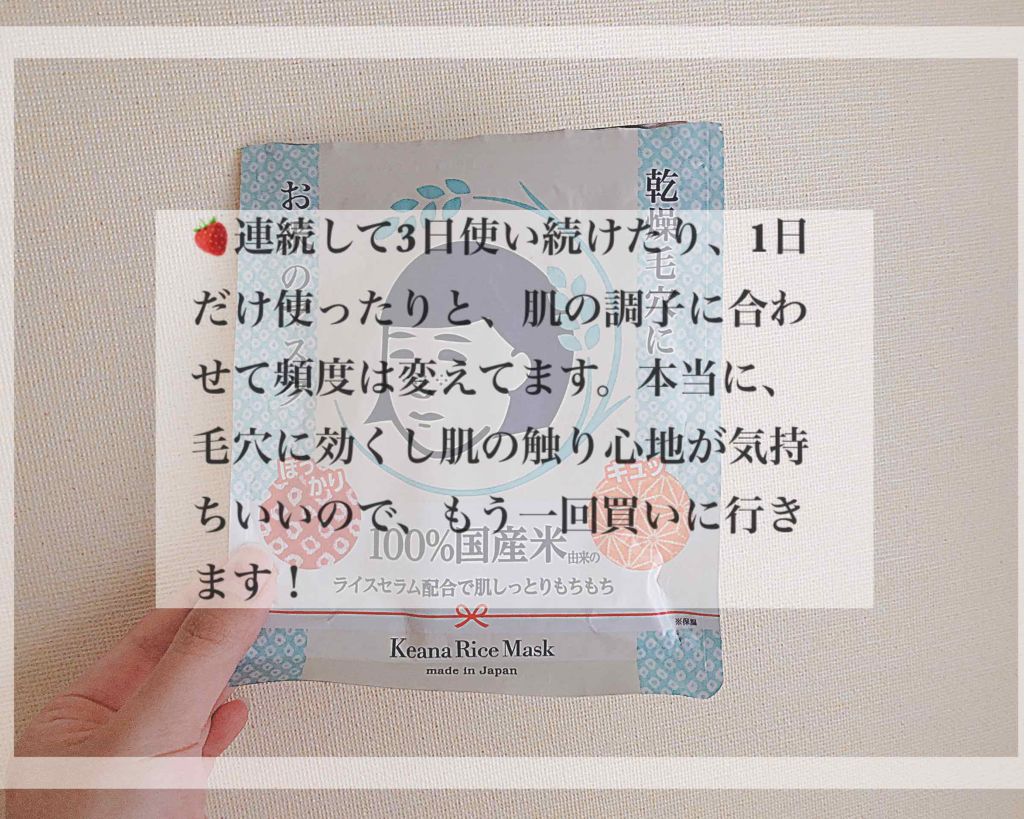 🍓連続して3日使い続けたり、1日
だけ使ったりと、肌の調子に合わ
せて頻度は変えてます。本当に、
毛穴に効くし肌の触り心地が気持
ちいいので、もう一回買いに行き
ます！
乾燥毛穴に
ほっかり
キュッ
100%国産米由来の
ライスセラム配合で肌しっとりもちもち
※保湿
Keana Rice Mask
made in Japan